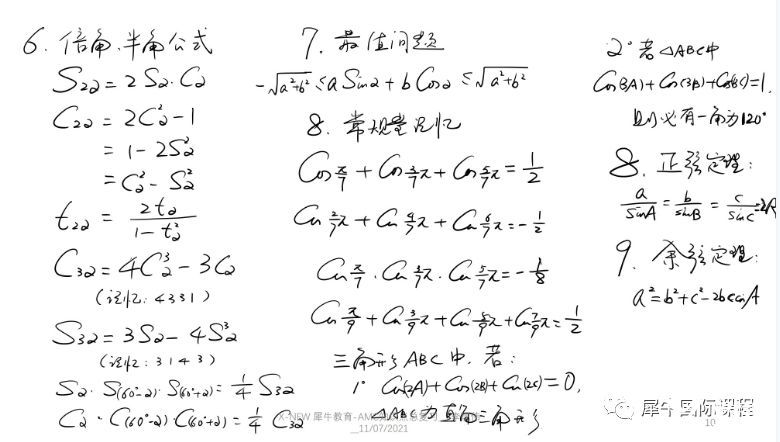 6. 倍角.半角公式
S₂₂ = 2 S₂·C₂
C₂₂ = 2C₂² - 1
= 1 - 2S₂²
= C₂² - S₂²
t₂₂ = 2t₂ / (1 - t₂²)
C₃₂ = 4C₂³ - 3C₂
(记忆: 4331)
S₃₂ = 3S₂ - 4S₂³
(记忆: 3143)
S₂·S(60°-2)·S(60°+2) = 1/4 S₃₂
C₂·C(60°-2)·C(60°+2) = 1/4 C₃₂
7. 最值问题
-√(a²+b²) ≤ a Sin2 + b Cos2 ≤ √(a²+b²)
8. 常规量记忆
Cos π/7 + Cos 3/7π + Cos 5/7π = 1/2
Cos 2/7π + Cos 4/7π + Cos 6/7π = -1/2
Cos π/7 · Cos 3/7π · Cos 5/7π = -1/8
Cos π/9 + Cos 3/9π + Cos 5/9π + Cos 7/9π = 1/2
三角形ABC中, 若:
1° Cos(2A) + Cos(2B) + Cos(2C) = 0,
△ABC为直角三角形
2° 若△ABC中
Cos(3A) + Cos(3B) + Cos(3C) = 1,
则必有一角为120°
8. 正弦定理:
a/SinA = b/sinB = c/sinC = 2R
9. 余弦定理:
a² = b² + c² - 2bccosA
X-NEW 犀牛教育-AM
11/07/2021
10
犀牛国际课程